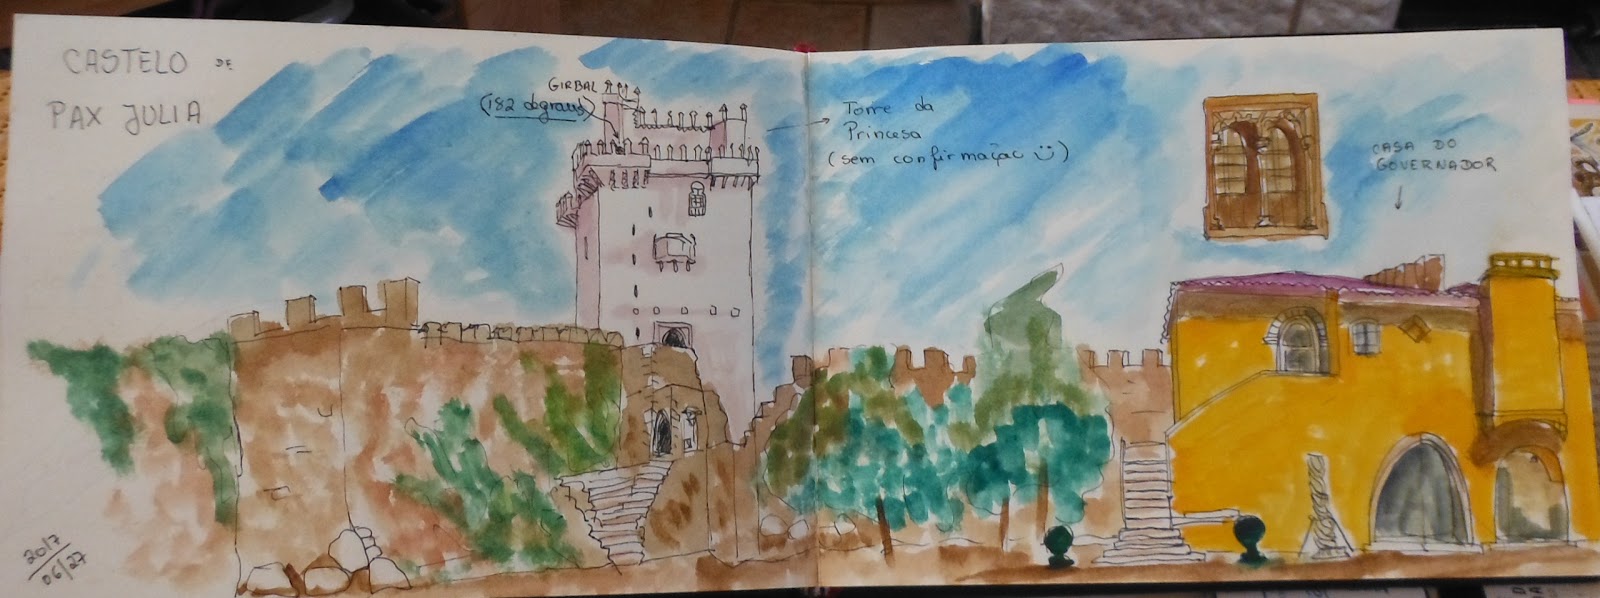 CASTELO DE
PAX JULIA
GIRBAL
(182 degraus)
Torre da
Princesa
(sem confirmaçao)
CASA DO
GOVERNADOR
2017
06/27